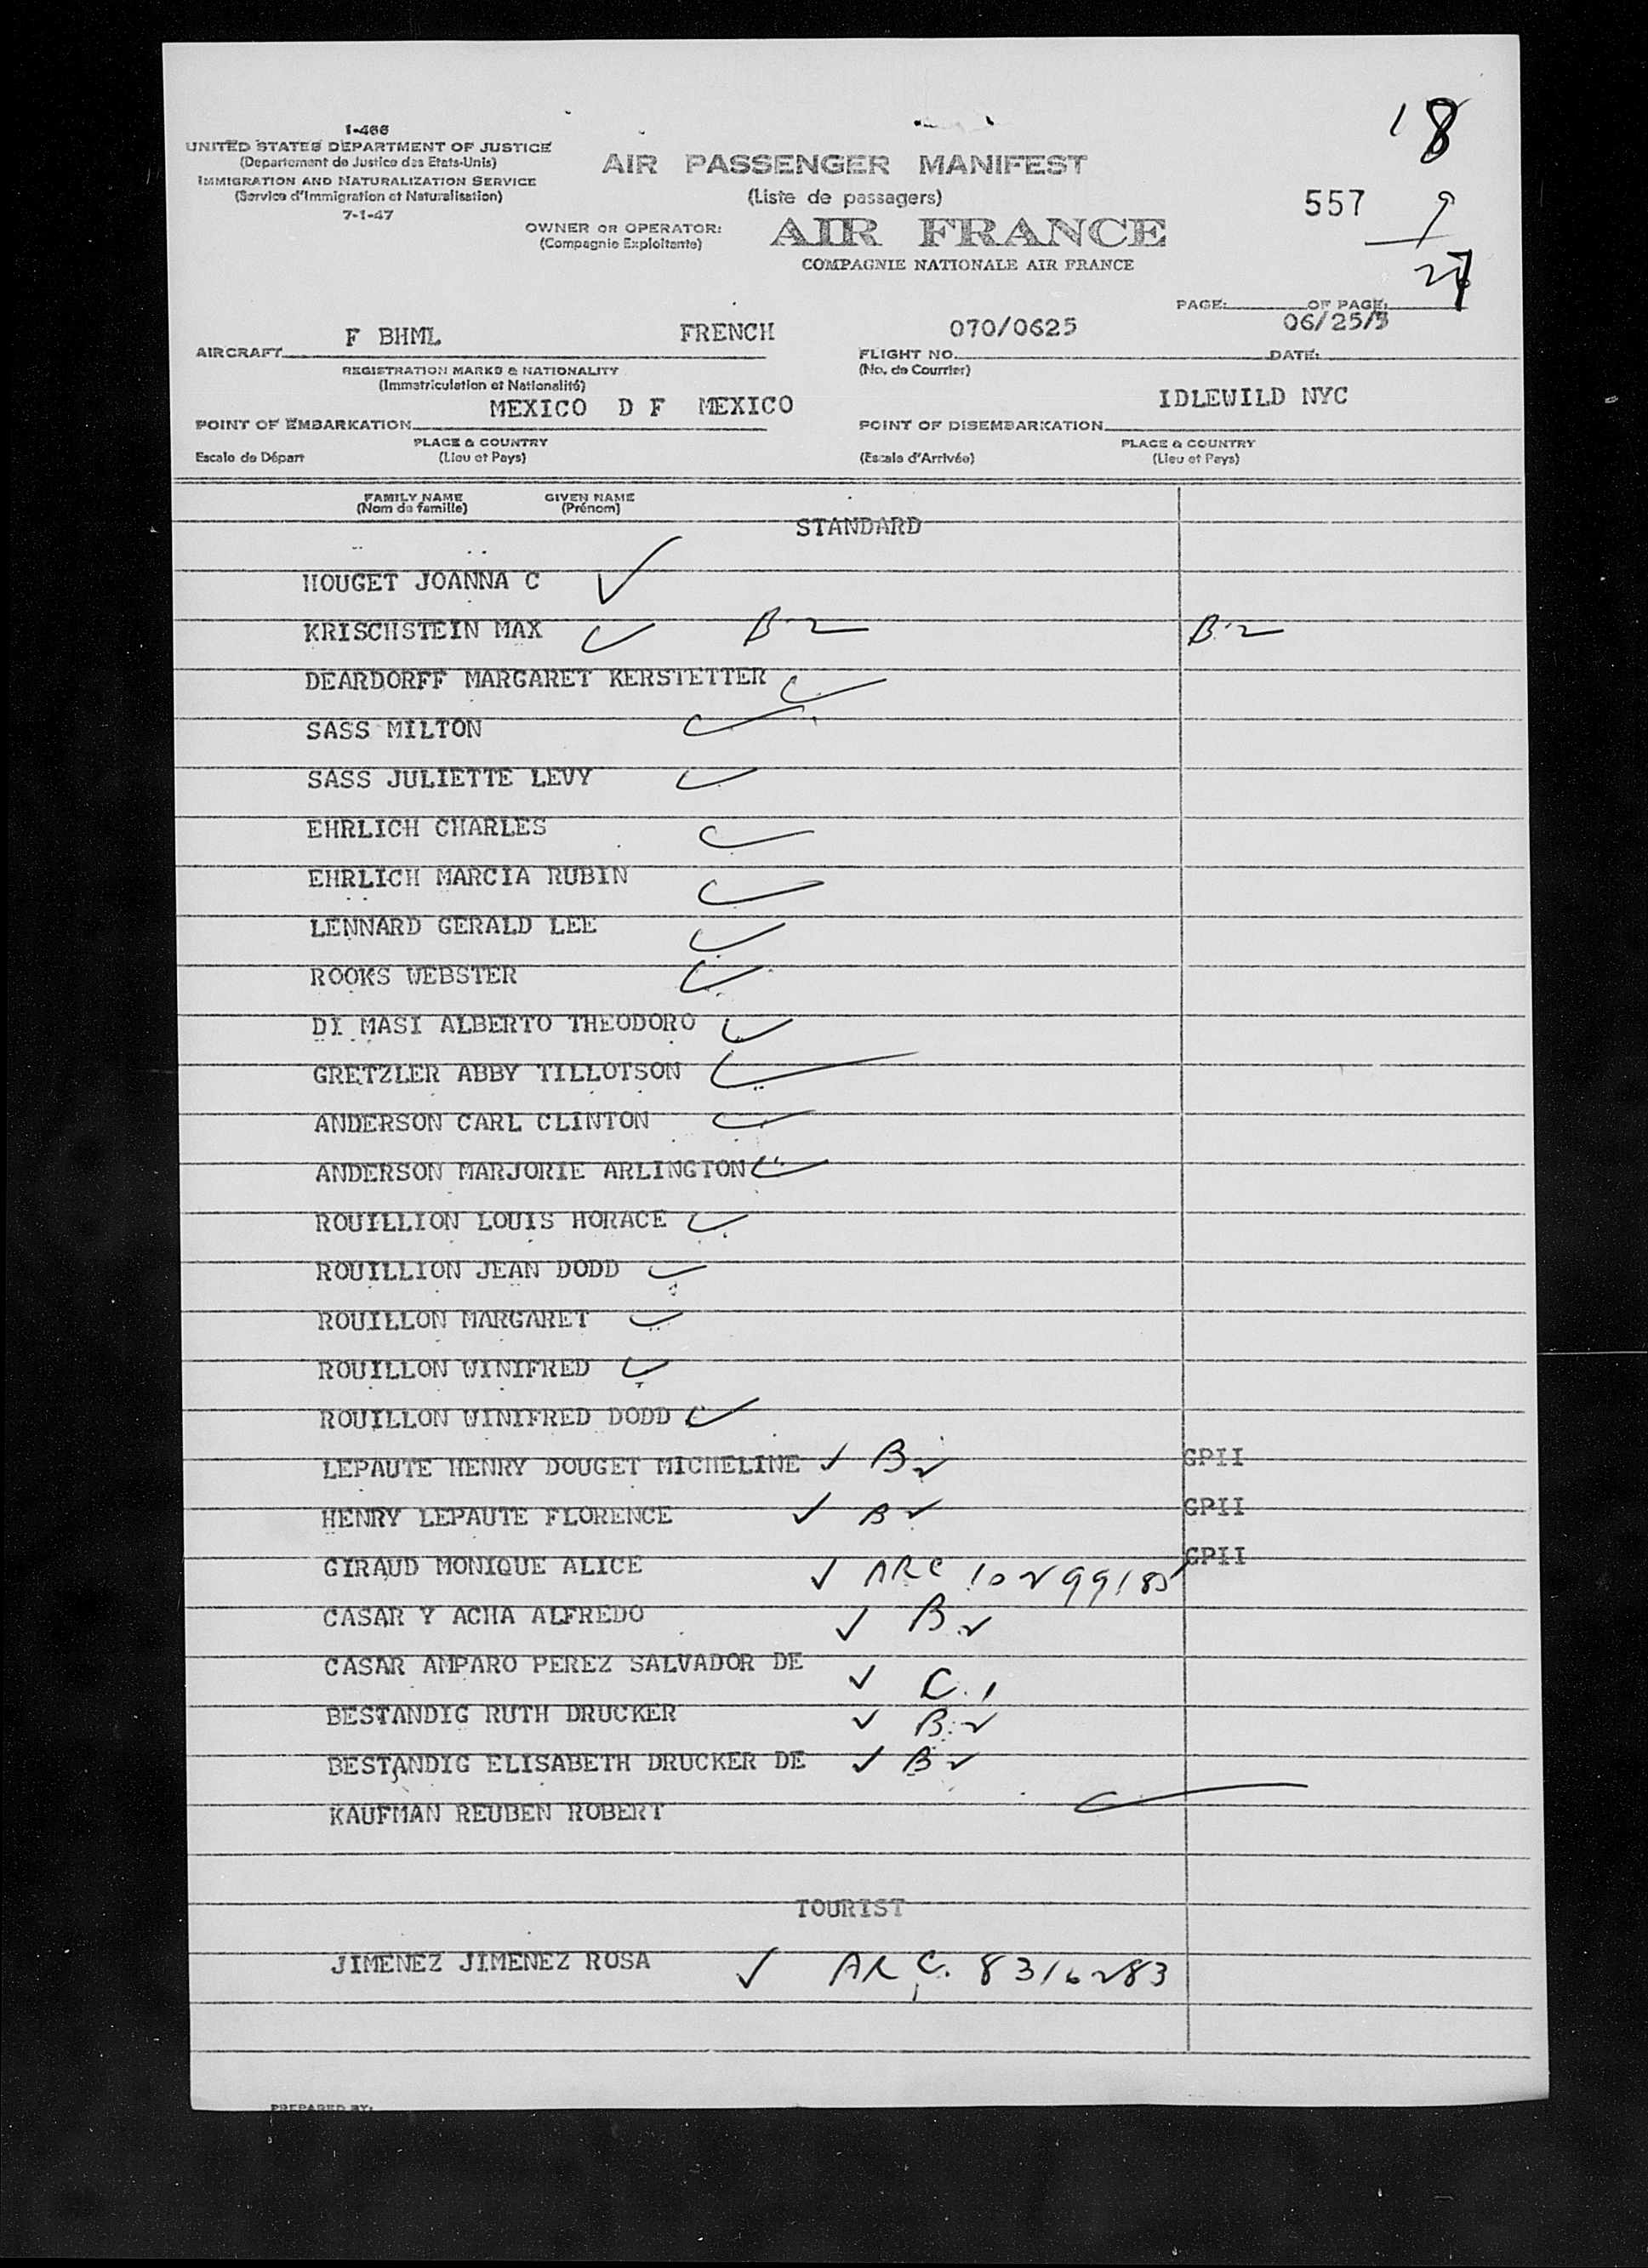 18
I-466
UNITED STATES DEPARTMENT OF JUSTICE
(Departement de Justice des Etats-Unis)
IMMIGRATION AND NATURALIZATION SERVICE
(Service d'Immigration et Naturalisation)
7-1-47
AIR PASSENGER MANIFEST
(Liste de passagers)
557
9
OWNER OR OPERATOR:
(Compagnie Exploitante)
AIR FRANCE
COMPAGNIE NATIONALE AIR FRANCE
27
PAGE: OF PAGE:
F BHML FRENCH 070/0625 06/25/5
AIRCRAFT FLIGHT NO. DATE:
REGISTRATION MARKS & NATIONALITY (No. de Courrier)
(Immatriculation et Nationalité)
MEXICO D F MEXICO IDLEWILD NYC
POINT OF EMBARKATION POINT OF DISEMBARKATION
PLACE & COUNTRY PLACE & COUNTRY
Escale de Départ (Lieu et Pays) (Escale d'Arrivée) (Lieu et Pays)
FAMILY NAME GIVEN NAME
(Nom de famille) (Prénom)
STANDARD
HOUGET JOANNA C ✓
KRISCHSTEIN MAX ✓ B-2 B-2
DEARDORFF MARGARET KERSTETTER ✓
SASS MILTON ✓
SASS JULIETTE LEVY ✓
EHRLICH CHARLES ✓
EHRLICH MARCIA RUBIN ✓
LENNARD GERALD LEE ✓
ROOKS WEBSTER ✓
DI MASI ALBERTO THEODORO ✓
GRETZLER ABBY TILLOTSON ✓
ANDERSON CARL CLINTON ✓
ANDERSON MARJORIE ARLINGTON ✓
ROUILLION LOUIS HORACE ✓
ROUILLION JEAN DODD ✓
ROUILLON MARGARET ✓
ROUILLON WINIFRED ✓
ROUILLON WINIFRED DODD ✓
LEPAUTE HENRY DOUGET MICHELINE ✓ B2 GPII
HENRY LEPAUTE FLORENCE ✓ B2 GPII
GIRAUD MONIQUE ALICE ✓ ARC 10299185 GPII
CASAR Y ACHA ALFREDO ✓ B.2
CASAR AMPARO PEREZ SALVADOR DE ✓ C.1
BESTANDIG RUTH DRUCKER ✓ B.2
BESTANDIG ELISABETH DRUCKER DE ✓ B2
KAUFMAN REUBEN ROBERT ✓
TOURIST
JIMENEZ JIMENEZ ROSA ✓ ARC. 8316283
PREPARED BY: